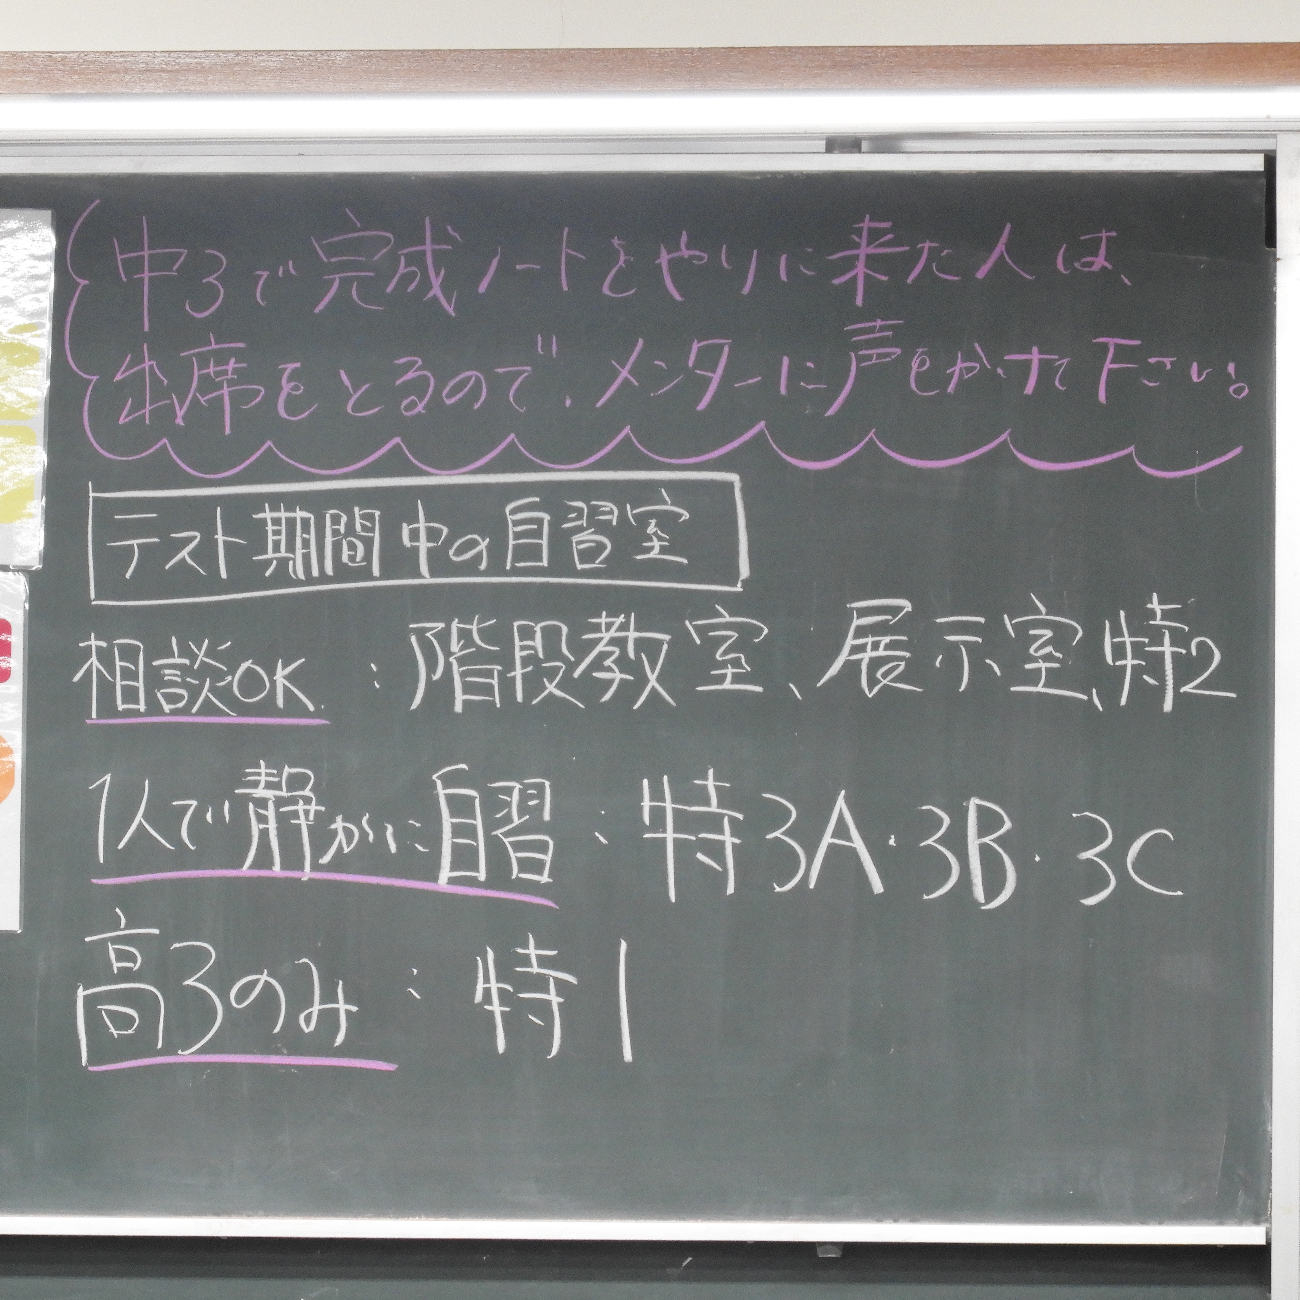 中3で完成ノートをやりに来た人は、
出席をとるので、メンターに声をかけて下さい。
テスト期間中の自習室
相談OK : 階段教室、展示室、特2
1人で静かに自習 : 特3A・3B・3C
高3のみ : 特1